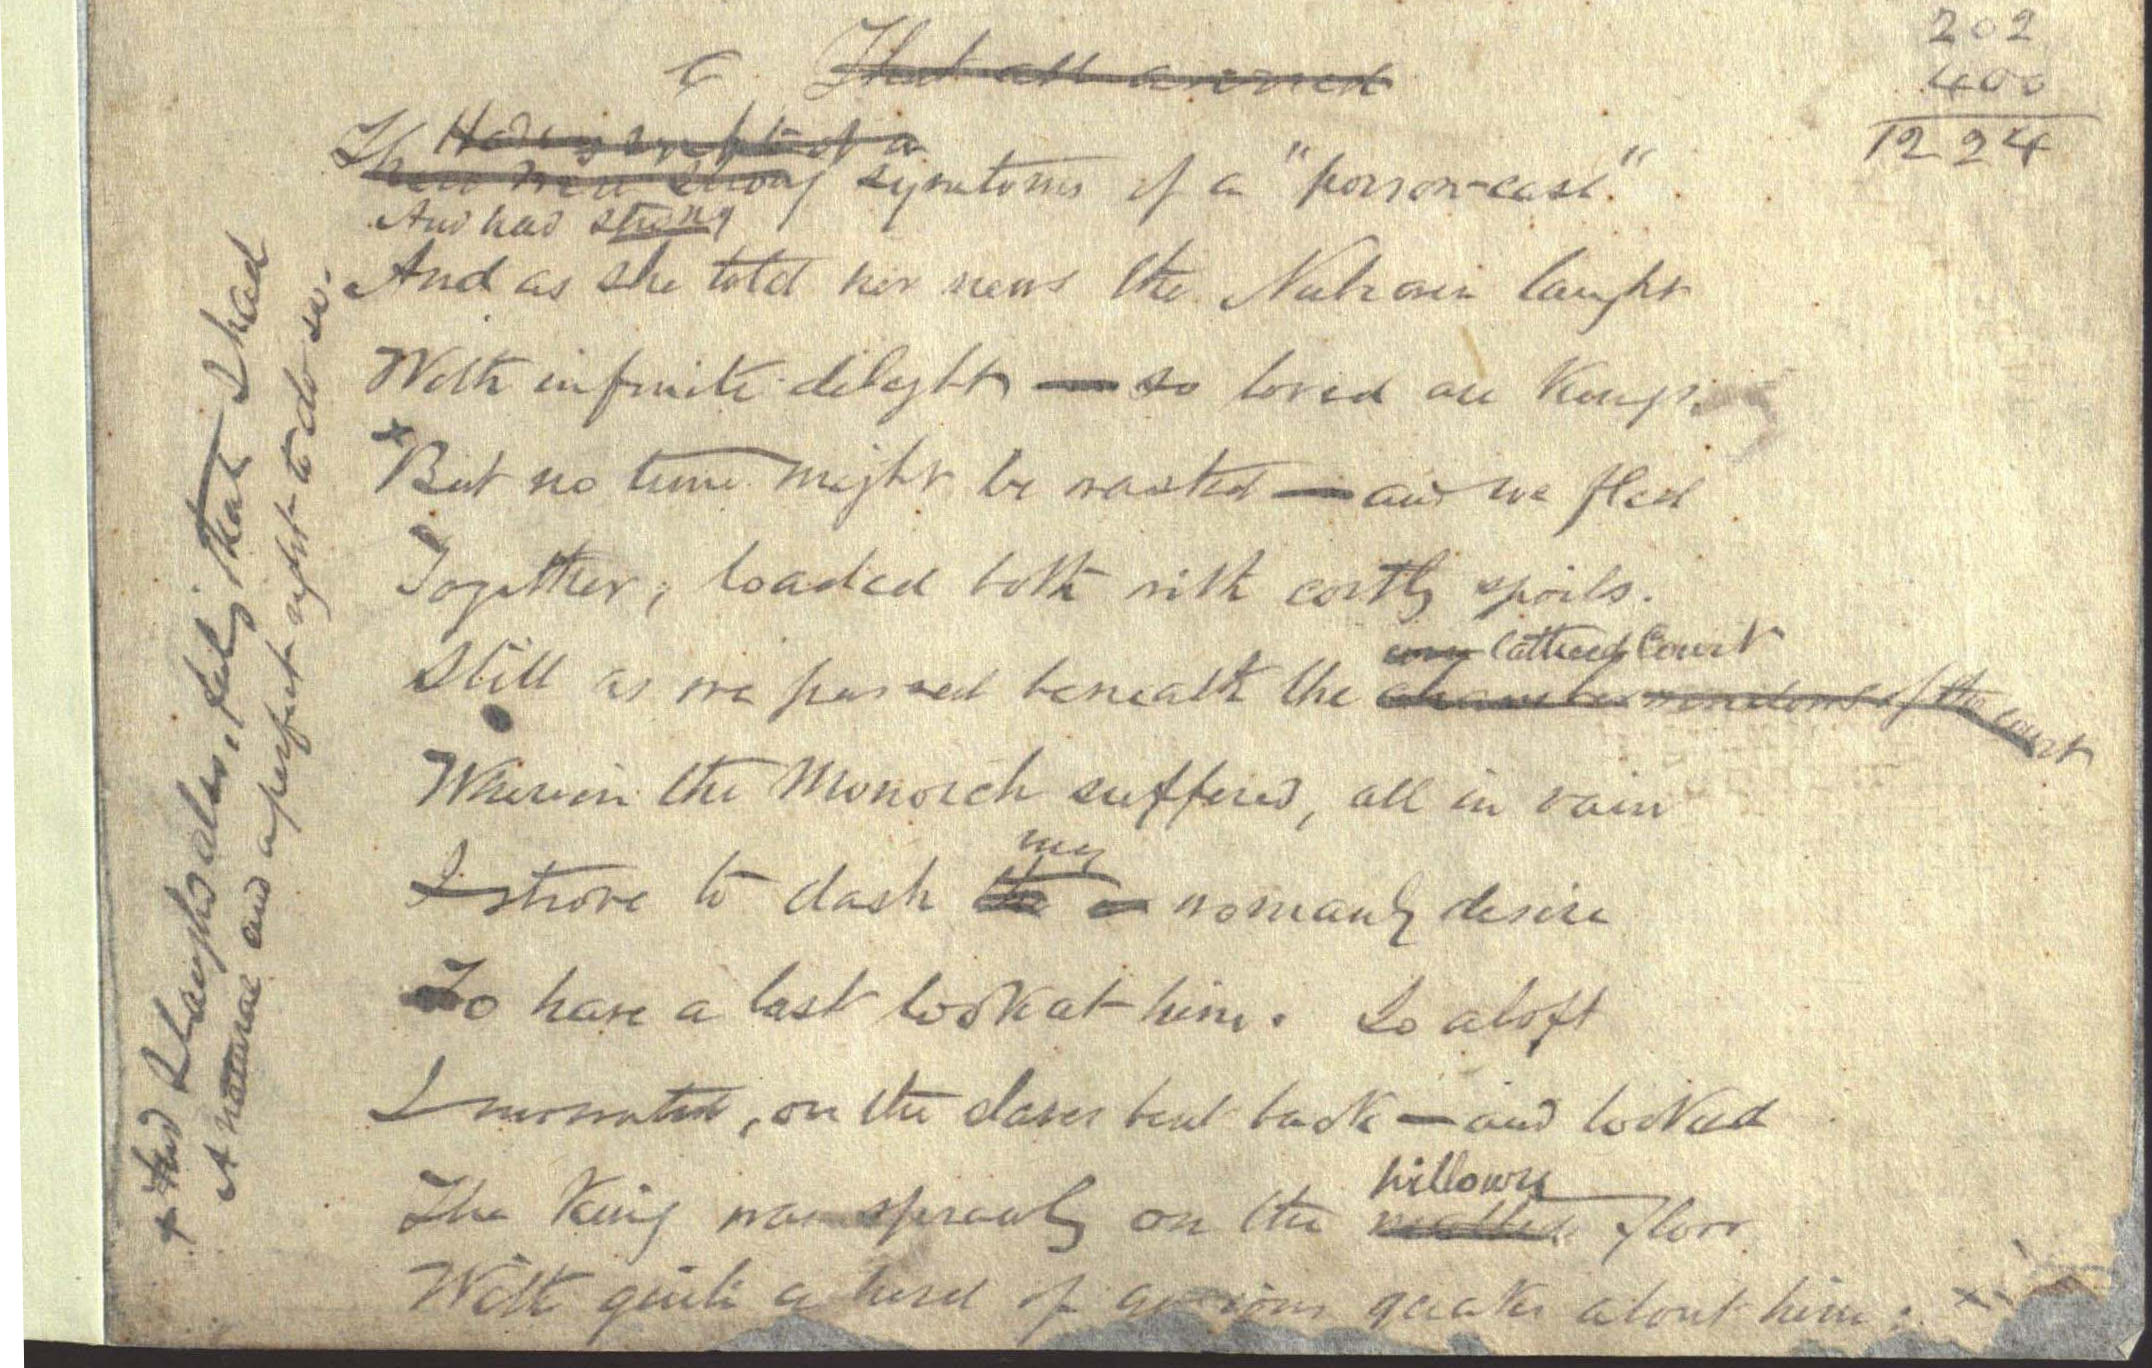 202
400
1224
That all
symptoms of a "poison-case."
And had strong
And as she told her news the Nubian laught
With infinite delight — so loved are Kings.
× But no time might be wasted — and we fled
Together, loaded both with costly spoils.
latticed Court
Still as we passed beneath the chamber windows of the court
Wherein the Monarch suffered, all in vain
my
I strove to dash the womanly desire
To have a last look at him. So aloft
I mounted, on the daves bent back — and looked
pillowy
The King was sprawly on the floor
With quite a herd of about him;
× And I laughed also, feeling that I had
A natural and a perfect right to do so.